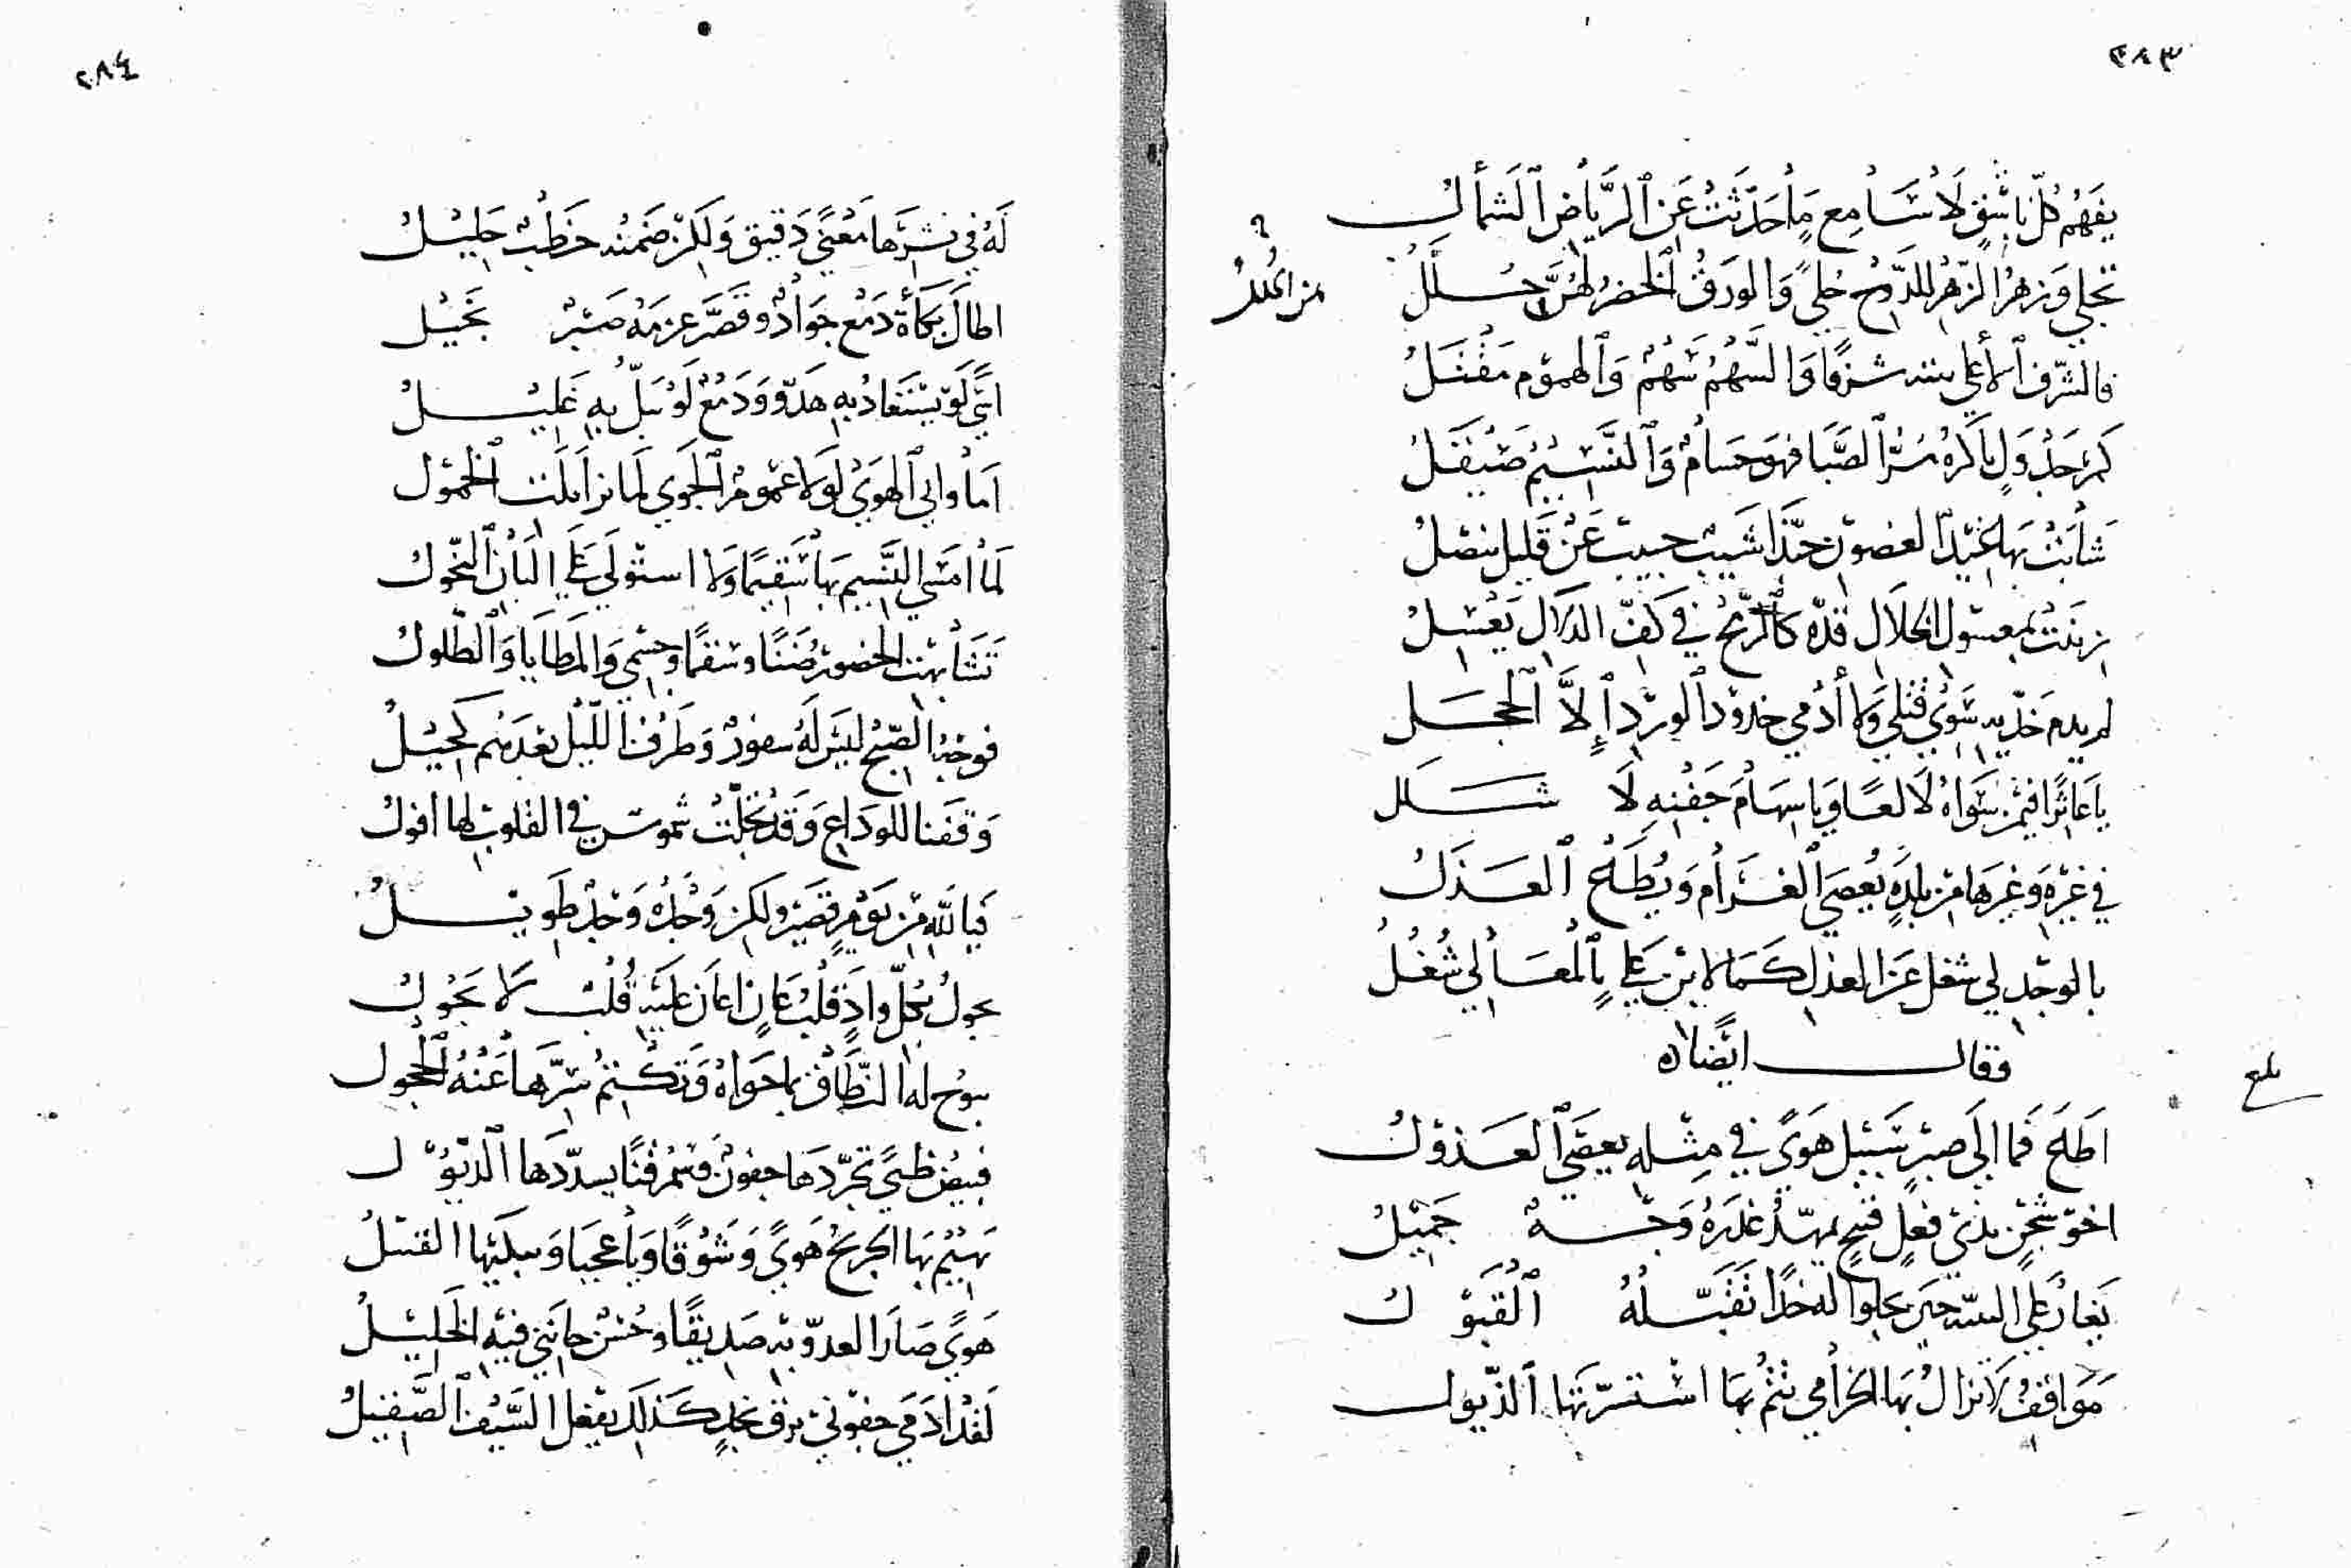 ٢٨٣
يفهم كلّ ناشقٍ لا سامع ما حدّثت عن الرياض الشمأل
تجلي وزهر الزهر للدوح حلي والورق الخضر لهنّ حلل
من الحلل
فالشرف الأعلى شرفا والسهم سهم والهموم مقتل
كم جدول باكره مرّ الصبا فهو حسام والنسيم صيقل
شابت بها غيد الغصون حبّذا شيب حبيب عن قليل ينصل
زينت بمعسول الخلال قدّه كالرمح في كفّ الدلال يعسل
لم يدم خدّيه سوي قتلي ولا أدمي خدود الورد إلا الخجل
يا عاثرا فيمن سواه لا لعا ويا سهام جفنه لا شلل
في غيره وغيرها من بلدةٍ يعصي الغرام ويطاع العذل
بالوجد لي شغل عن العذل كما لابن علي بالمعالي شغل
وقال ايضا
بلغ
اطلح فما الى صبر سبيل هوى في مثله يعصي العذول
اخو شجن بذي فعل قبيح يمهّد عذره وجه جميل
يغار علي الستر حين يجلوا له خدّا تقبّله القبول
مواقف لا نزال بها الخزامي تنم بها استسرّتها الذيول
٢٨٤
له في نشرها معنى دقيق ولكن ضمنه خطب جليل
اطال بكأة دمع جواد وقصّر عزمه صبر بخيل
اسى لو يستعاد به هدو ودمع لو يبلّ به غليل
اما وابي الهوي لولا عموم الجوي لما زايلت الحمول
لما امسي النسيم بها سقيما ولا استولي علي البان النحول
تشابهت الخصور ضنا وسقما وجسمي والمطايا والطلول
فوجه الصبح ليس له سفور وطرف الليل بعدهم كحيل
وقفنا للوداع وقد تجلّت شموس في القلوب لها افول
فيا لله من يوم قصير ولكن وجده وجد طويل
يجول بكلّ واد قلب عان اعان عليه قلب لا يجول
يبوح له النطاق بما حواه وتكتم سرّها عنه الحجول
فبيض ظبيً تجرّدها جفون وسمر قنا يسدّدها الذبول
يهيم بها الجريح هوي وشوقا ويا عجبا ويبكيها القتيل
هوي صار العدوّ به صديقا وحسن خانني فيه الخليل
لقد ادمي جفوني برق نجد كذلك يفعل السيف الصقيل